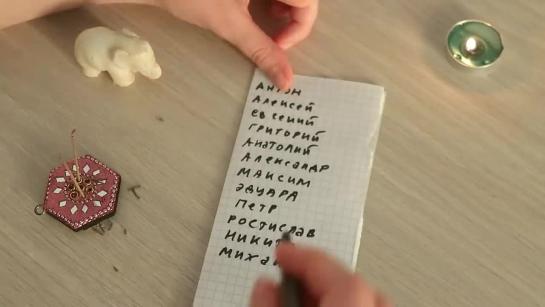 АНТОН
АЛЕКСЕЙ
ЕВГЕНИЙ
ГРИГОРИЙ
АНАТОЛИЙ
АЛЕКСАНДР
МАКСИМ
ЭДУАРД
ПЕТР
РОСТИСЛАВ